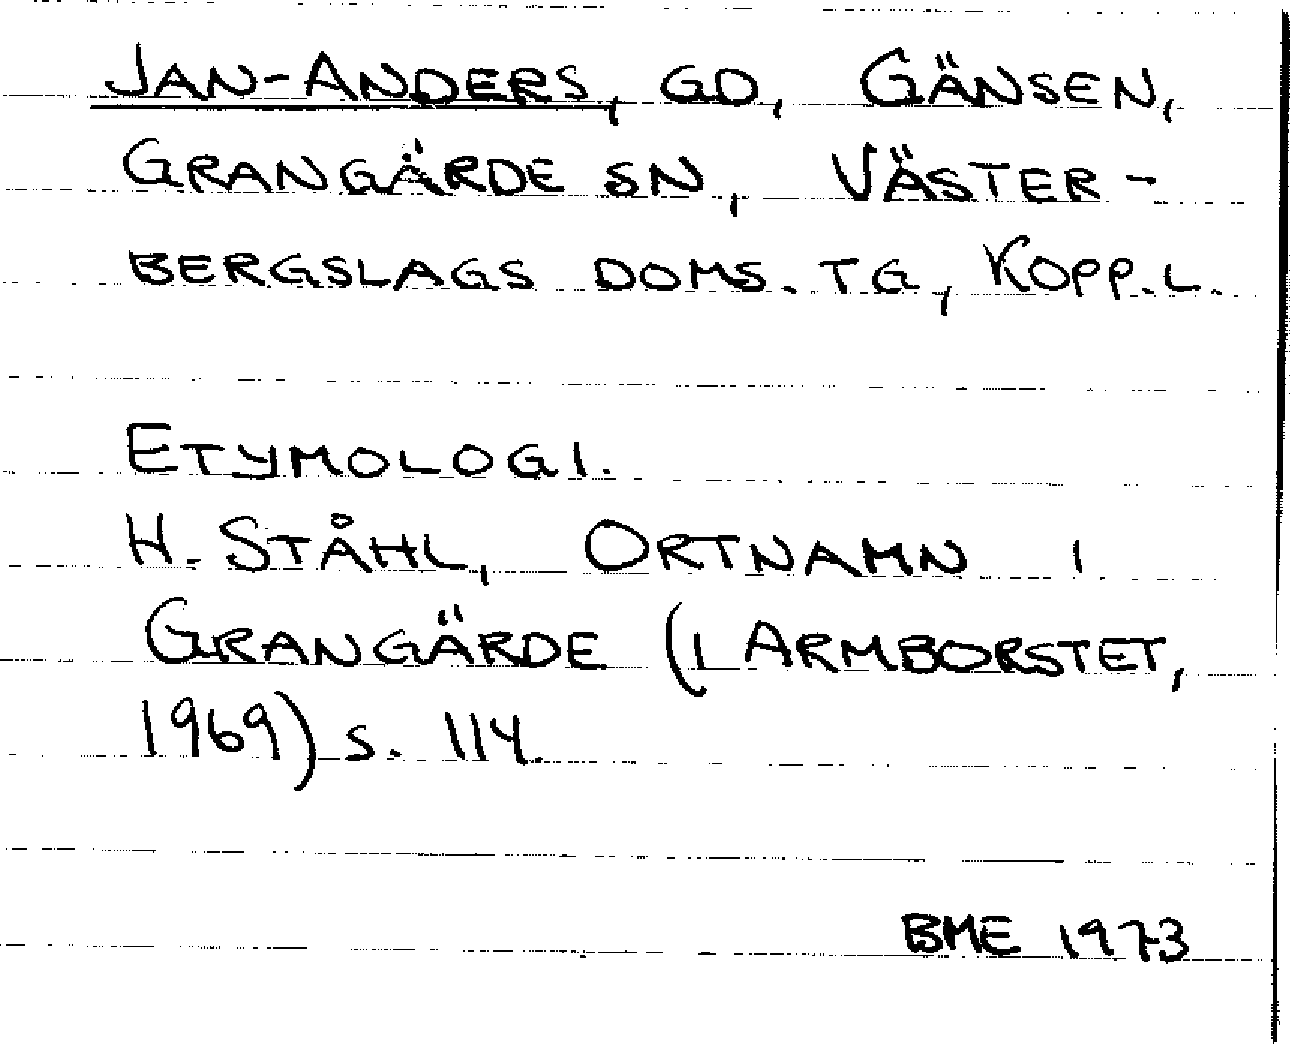 JAN-ANDERS, GD, GÄNSEN,
GRANGÄRDE SN, VÄSTER-
BERGSLAGS DOMS. TG, KOPP.L.
ETYMOLOGI.
H. STÅHL, ORTNAMN I
GRANGÄRDE (I ARMBORSTET,
1969) s. 114.
BME 1973